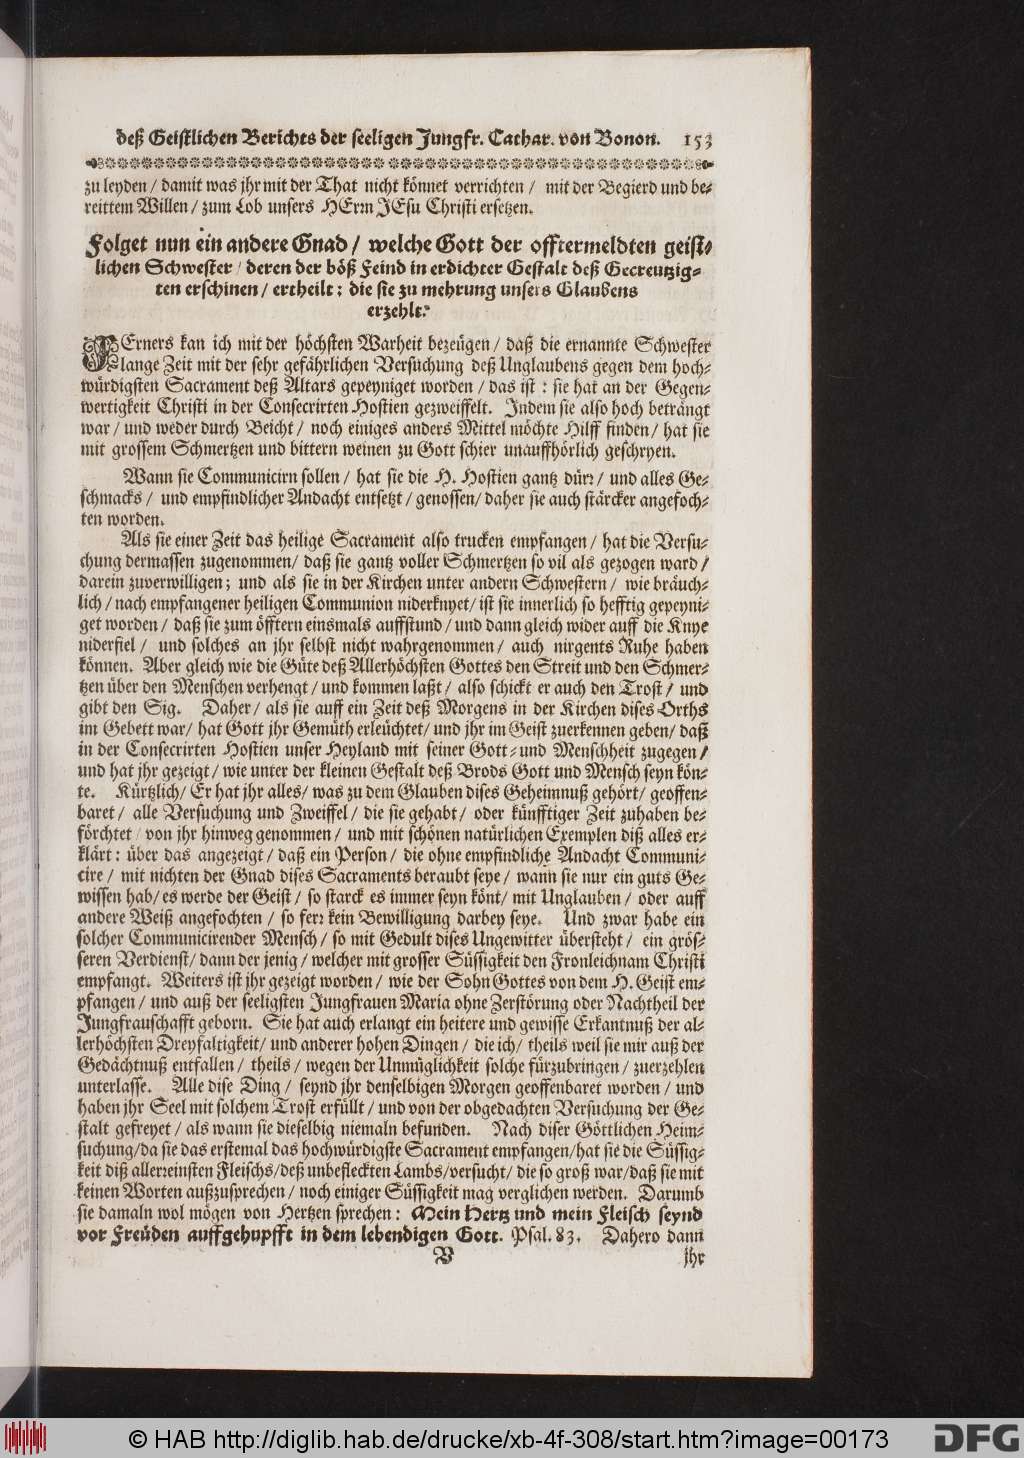 deß Geistlichen Berichts der seeligen Jungfr. Cathar. von Bonon. 153
zu leyden / damit was jhr mit der That nicht könnet verrichten / mit der Begierd und be-
reittem Willen / zum Lob unsers HErrn JEsu Christi ersetzen.
Folget nun ein andere Gnad / welche Gott der offtermeldten geist-
lichen Schwester / deren der böß Feind in erdichter Gestalt deß Gecreutzig-
ten erschinen / ertheilt; die sie zu mehrung unsers Glaubens
erzehlt.
FErners kan ich mit der höchsten Warheit bezeügen / daß die ernannte Schwester
lange Zeit mit der sehr gefährlichen Versuchung deß Unglaubens gegen dem hoch-
würdigsten Sacrament deß Altars gepeyniget worden / das ist : sie hat an der Gegen-
wertigkeit Christi in der Consecrirten Hostien gezweiffelt. Indem sie also hoch beträngt
war / und weder durch Beicht / noch einiges anders Mittel möchte Hilff finden / hat sie
mit grossem Schmertzen und bittern weinen zu Gott schier unauffhörlich geschryen.
Wann sie Communicirn sollen / hat sie die H. Hostien gantz dürr / und alles Ge-
schmacks / und empfindlicher Andacht entsetzt / genossen / daher sie auch stärcker angefoch-
ten worden.
Als sie einer Zeit das heilige Sacrament also trucken empfangen / hat die Versu-
chung dermassen zugenommen / daß sie gantz voller Schmertzen so vil als gezogen ward /
darein zuverwilligen; und als sie in der Kirchen unter andern Schwestern / wie bräuch-
lich / nach empfangener heiligen Communion niderknyet / ist sie innerlich so hefftig gepeyni-
get worden / daß sie zum öfftern einsmals auffstund / und dann gleich wider auff die Knye
niderfiel / und solches an jhr selbst nicht wahrgenommen / auch nirgents Ruhe haben
können. Aber gleich wie die Güte deß Allerhöchsten Gottes den Streit und den Schmer-
tzen über den Menschen verhengt / und kommen laßt / also schickt er auch den Trost / und
gibt den Sig. Daher / als sie auff ein Zeit deß Morgens in der Kirchen dises Orths
im Gebett war / hat Gott jhr Gemüth erleüchtet / und jhr im Geist zuerkennen geben / daß
in der Consecrirten Hostien unser Heyland mit seiner Gott- und Menschheit zugegen /
und hat jhr gezeigt / wie unter der kleinen Gestalt deß Brods Gott und Mensch seyn kön-
te. Kürtzlich / Er hat jhr alles / was zu dem Glauben dises Geheimnuß gehört / geoffen-
baret / alle Versuchung und Zweiffel / die sie gehabt / oder künfftiger Zeit zuhaben be-
förchtet / von jhr hinweg genommen / und mit schönen natürlichen Exemplen diß alles er-
klärt : über das angezeigt / daß ein Person / die ohne empfindliche Andacht Communi-
cire / mit nichten der Gnad dises Sacraments beraubt seye / wann sie nur ein guts Ge-
wissen hab / es werde der Geist / so starck es immer seyn könt / mit Unglauben / oder auff
andere Weiß angefochten / so ferr kein Bewilligung darbey seye. Und zwar habe ein
solcher Communicirender Mensch / so mit Gedult dises Ungewitter übersteht / ein grös-
seren Verdienst / dann der jenig / welcher mit grosser Süssigkeit den Fronleichnam Christi
empfangt. Weiters ist jhr gezeigt worden / wie der Sohn Gottes von dem H. Geist em-
pfangen / und auß der seeligsten Jungfrauen Maria ohne Zerstörung oder Nachtheil der
Jungfrauschafft geborn. Sie hat auch erlangt ein heitere und gewisse Erkantnuß der al-
lerhöchsten Dreyfaltigkeit / und anderer hohen Dingen / die ich / theils weil sie mir auß der
Gedächtnuß entfallen / theils / wegen der Unmüglichkeit solche fürzubringen / zuerzehlen
unterlasse. Alle dise Ding / seynd jhr denselbigen Morgen geoffenbaret worden / und
haben jhr Seel mit solchem Trost erfüllt / und von der obgedachten Versuchung der Ge-
stalt gefreyet / als wann sie dieselbig niemaln befunden. Nach diser Göttlichen Heim-
suchung / da sie das erstemal das hochwürdigste Sacrament empfangen / hat sie die Süssig-
keit diß allerreinsten Fleischs / deß unbefleckten Lambs / versucht / die so groß war / daß sie mit
keinen Worten außzusprechen / noch einiger Süssigkeit mag verglichen werden. Darumb
sie damaln wol mögen von Hertzen sprechen : Mein Hertz und mein Fleisch seynd
vor Freüden auffgehupfft in dem lebendigen Gott. Psal. 83. Dahero dann
V jhr
© HAB http://diglib.hab.de/drucke/xb-4f-308/start.htm?image=00173
DFG